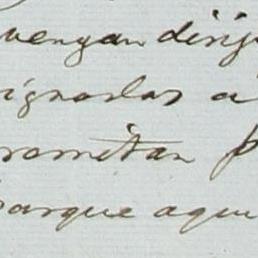 vengan dirij
ignadas a
rometan p
barque aqu